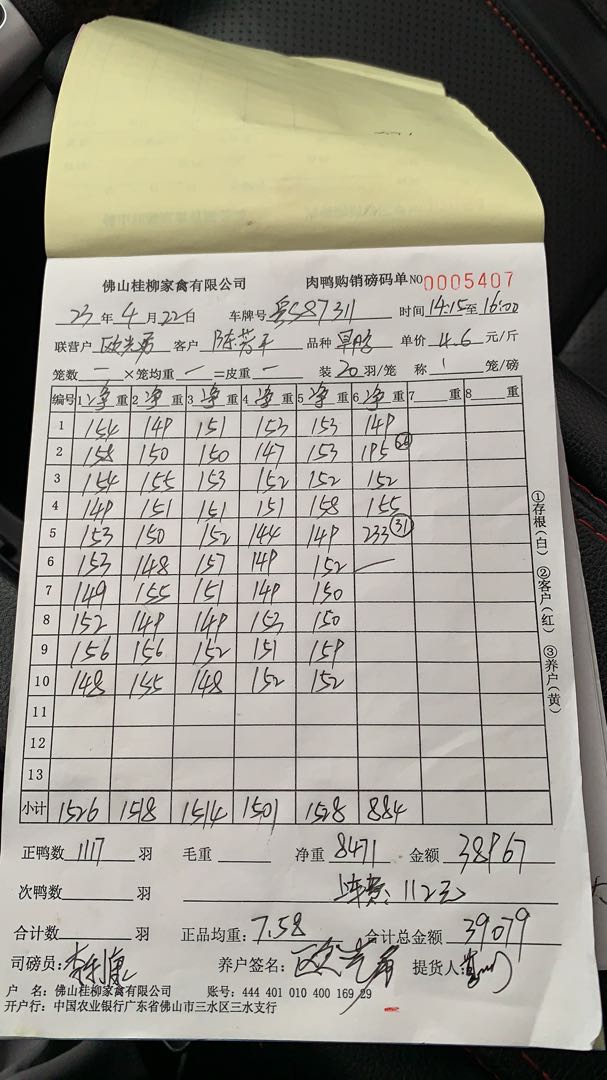 佛山桂柳家禽有限公司 肉鸭购销磅码单 NO 0005407
23 年 4 月 22 日 车牌号 粤S87311 时间 14:15 至 16:00
联营户 欧光勇 客户 陈芳平 品种 单价 4.6 元/斤
笼数 一 ×笼均重 一 =皮重 一 装 20 羽/笼 称 1 笼/磅
编号 1 净 重 2 净 重 3 净 重 4 净 重 5 净 重 6 净 重 7 重 8 重
1 154 149 151 153 153 149
2 158 150 150 147 153 195 26
3 154 155 153 152 152 152
4 149 151 151 151 158 155
5 153 150 152 144 149 233 31
6 153 148 157 149 152 —
7 149 155 151 149 150
8 152 149 149 153 150
9 156 156 152 151 159
10 148 155 148 152 152
11
12
13
小计 1526 1518 1514 1501 1528 884
正鸭数 1117 羽 毛重 净重 8471 金额 38967
次鸭数 羽 车费: 112元
合计数 羽 正品均重: 7.58 合计总金额 39079
司磅员: 养户签名: 欧光勇 提货人:
户 名: 佛山桂柳家禽有限公司 账号: 444 401 010 400 169 29
开户行: 中国农业银行广东省佛山市三水区三水支行
①存根(白) ②客户(红) ③养户(黄)